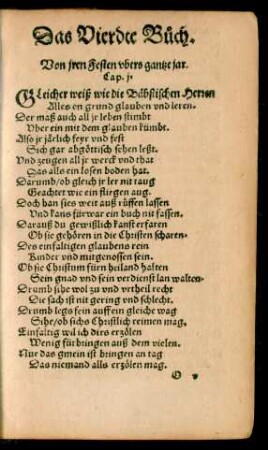 Das Vierdte Büch.
Von jren Festen vbers gantze jar.
Cap. j.
GLeicher weiß wie die Bäbstischen Herren
Alles on grund glauben vnd leren.
Der maß auch all jr leben stimbt
Vber ein mit dem glauben kümbt.
Also jr järlich feyr vnd fest
Sich gar abgöttisch sehen leßt.
Vnd zeugen all jr werck vnd that
Das alls ein losen boden hat.
Darumb/ob gleich jr ler nit taug
Geachtet wie ein fliegen aug.
Doch han sies weit auß rüffen lassen
Vnd kans fürwar ein buch nit fassen.
Darauß du gewißlich kanst erfaren
Ob sie gehören in die Christen scharen
Des einfaltigen glaubens rein
Kinder vnd mitgenossen sein.
Ob sie Christum fürn heiland halten
Sein gnad vnd sein verdienst lan walten.
Drumb sihe wol zu vnd vrtheil recht
Die sach ist nit gering vnd schlecht.
Drumb legs fein auff ein gleiche wag
Sihe/ob sichs Christlich reimen mag.
Einfaltig wil ich dirs erzölen
Wenig fürbringen auß dem vielen.
Nur das gmein ist bringen an tag
Das niemand alls erzölen mag.
O